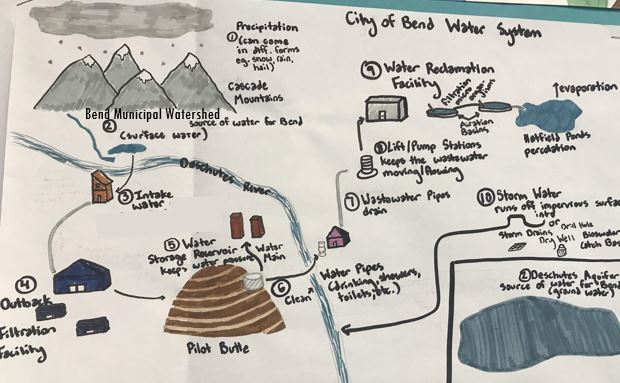 City of Bend Water System
① Precipitation
(can come
in diff. forms
eg. snow, rain,
hail)
Cascade
Mountains
Bend Municipal Watershed
② source of water for Bend
(surface water)
Deschutes River
③ Intake
water
④
Outback
Filtration
Facility
⑤ Water
Storage Reservoir
keeps water pressure
Water
Main
Pilot Butte
⑥
Clean
Water Pipes
(drinking, showers,
toilets, etc.)
⑦ Wastewater Pipes
drain
⑧ Lift/Pump Stations
keeps the wastewater
moving/flowing
⑨ Water Reclamation
Facility
filtration
micro organisms
Aeration
Basins
↑evaporation
Hatfield Ponds
percolation
⑩ Storm Water
runs off impervious surfa
into
Storm Drains
or Drill Hole
Dry Well
Bioswa
Catch Bas
② Deschutes Aquifer
source of water for Bend
(ground water)